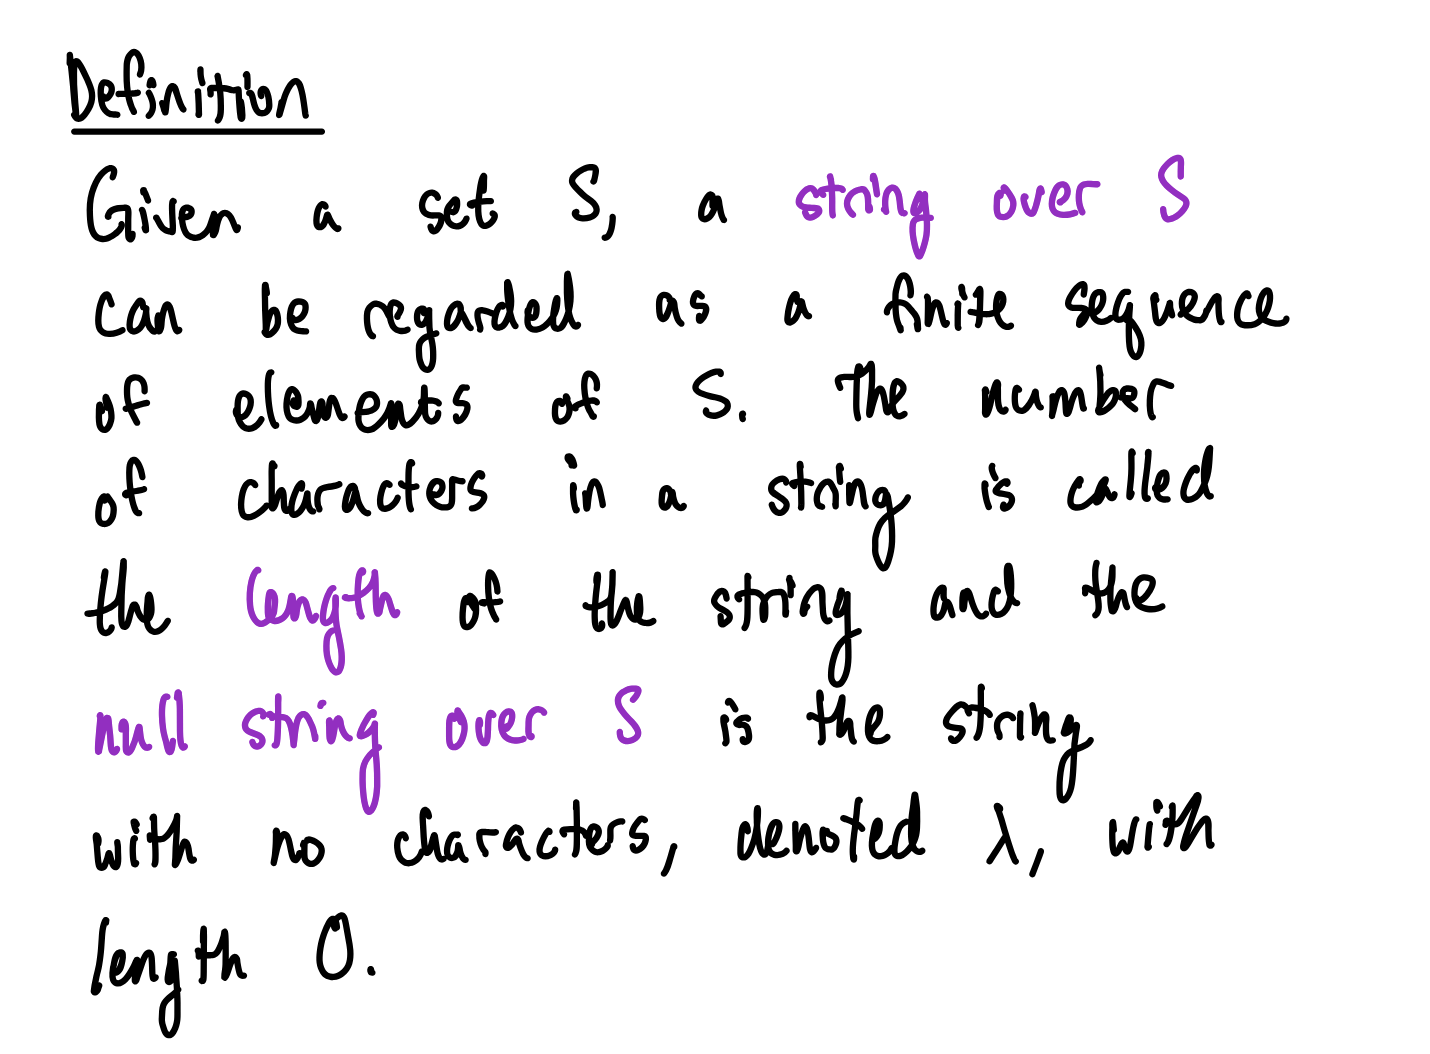 Definition
Given a set S, a string over S
can be regarded as a finite sequence
of elements of S. The number
of characters in a string is called
the length of the string and the
null string over S is the string
with no characters, denoted λ, with
length 0.